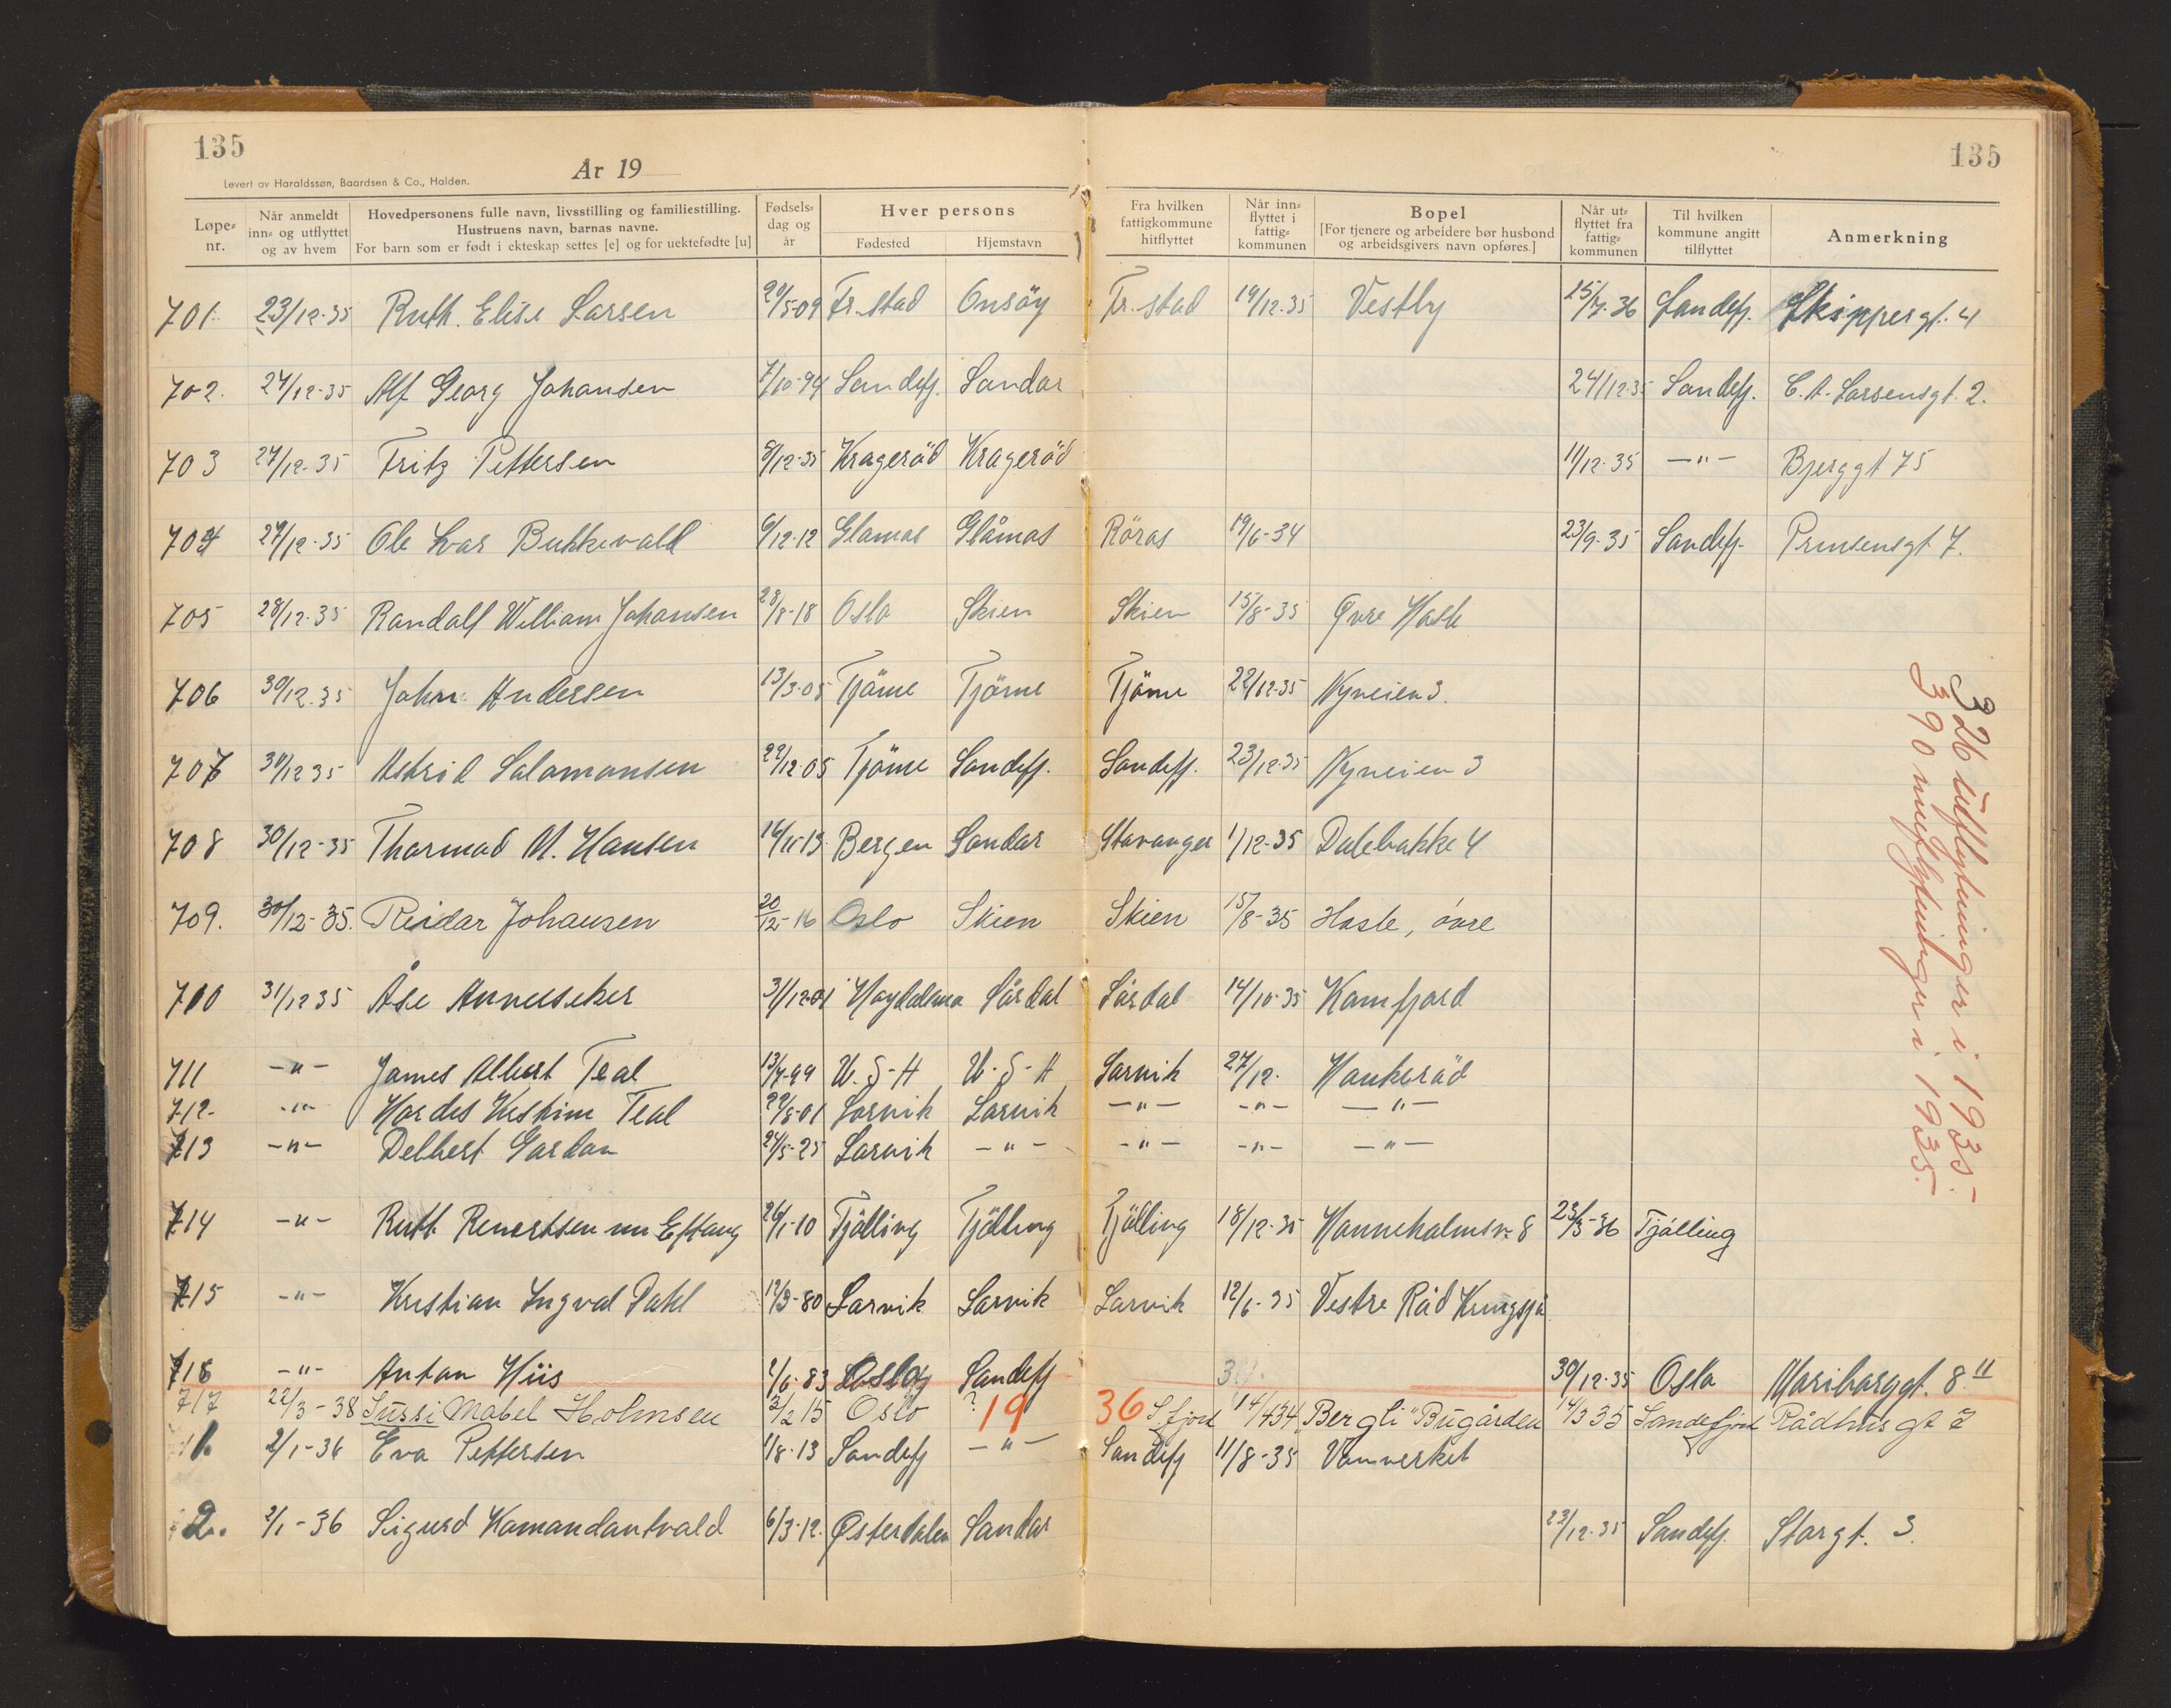 135
135
År 19
Levert av Haraldssøn, Baardsen & Co., Halden.
Løpe-nr. Når anmeldt inn- og utflyttet og av hvem Hovedpersonens fulle navn, livsstilling og familiestilling. Hustruens navn, barnas navne. For barn som er født i ekteskap settes [e] og for uektefødte [u] Fødsels-dag og år Hver persons Fødested Hjemstavn Fra hvilken fattigkommune hitflyttet Når inn-flyttet i fattig-kommunen Bopel [For tjenere og arbeidere bør husbond og arbeidsgivers navn opføres.] Når ut-flyttet fra fattig-kommunen Til hvilken kommune angitt tilflyttet Anmerkning
701. 23/12-35 Ruth. Elise Larsen 20/5-09 Fr.stad Onsöy Fr.stad 19/12.35 Vestby 15/7-36 Sandefj. Skippergt. 4
702. 27/12-35 Alf Georg Johansen 7/10-94 Sandefj. Sandar 24/12-35 Sandefj. C. A. Larsensgt. 2.
703 27/12-35 Fritz Pettersen 8/12-35 Krageröd Krageröd 11/12-35 —"— Bjerggt 75
704 27/12-35 Ole Ivar Bukkevold 6/12-12 Glåmos Glåmos Röros 19/6-34 23/9-35 Sandefj. Prinsensgt 7.
705 28/12-35 Randolf William Johansen 28/8-18 Oslo Skien Skien 15/8-35 Øvre Hasle
706 30/12.35 John Andersen 13/3-05 Tjöme Tjöme Tjöme 22/12-35 Nyveien 3.
707 30/12 35 Astrid Salomonsen 22/12-05 Tjöme Sandefj. Sandefj. 23/12-35 Nyveien 3
708 30/12-35 Thormod M. Hansen 16/11-13 Bergen Sandar Stavanger 1/12-35 Dalebakke 4
709. 30/12-35. Reidar Johansen 20/12-16 Oslo Skien Skien 15/8-35 Hasle, övre
710 31/12 35 Åse 31/12-01 Lårdal Lårdal 14/10-35 Kamfjord
711 —"— James Albert Teal 13/7-99 U.S-A U.S-A Larvik 27/12. Haukeröd
712- —"— Hordes Kristine Teal 22/8-01 Larvik Larvik —"— —"— —"—
713 —"— Delbert Gordon 24/5-25 Larvik —"— —"— —"— —"—
714 —"— Ruth Renertsen nu Eftang 26/1-10 Tjölling Tjölling Tjölling 18/12-35 Hanneholmsv. 8 23/3-36 Tjölling
715 —"— Kristian Ingval Dahl 12/3-80 Larvik Larvik Larvik 12/6-35 Vestre Råd
716 —"— Anton Hiis 2/6-83 Oslo Sandefj 30/12-35 Oslo Mariborggt. 8 II
717 22/3-38 Sussi Mabel Holmsen 3/2 15 Oslo ? Sfjord 14/4 34 "Bergli" Bugården 14/3 35 Sandefjord Rådhusgt 7
19 36
1. 2/1-36 Eva Pettersen 1/8-13 Sandefj —"— Sandefj 11/8-35 Vannverket
2. 2/1-36 Sigurd Komandantvold 6/3-12. Østerdalen Sandar 23/12-35 Sandefj. Storgt. 3.
326 utflytninger i 1935.-
390 innflytninger i 1935.-